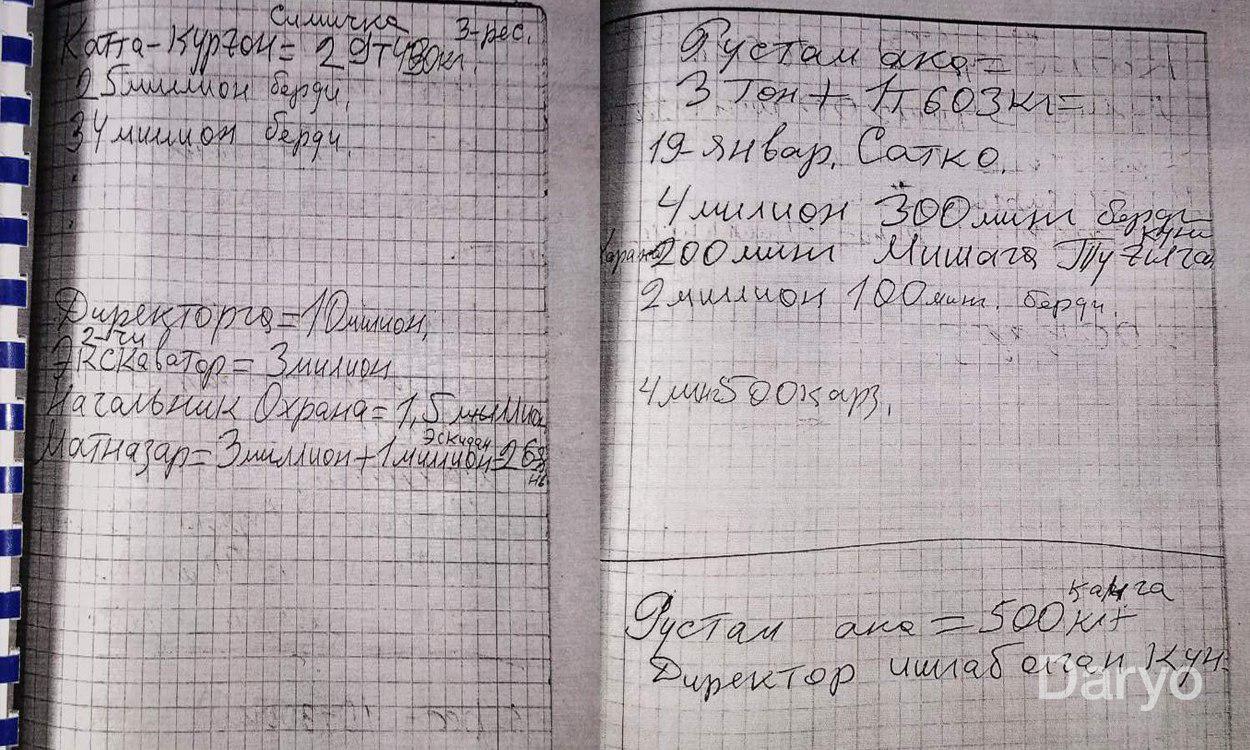 Симичка 3-рес.
Катта-Курғон= 29т490кг.
25миллион берди.
34миллион берди.
Директорга=10милион,
2-чи
Экскаватор= 3милион
Начальник Охрана= 1,5миллион
Эскидан
Матназар=3миллион+1миллион=26
Рустам ака=
3 Тон + 1т 603кг=
19-январ. Сатко.
4милион 300минг берди
куни
200минг Мишага Туғилган
2миллион 100минг. берди.
4минг500қарз.
Рустам ака =500кг+
Директор ишлаб олган кун.
Daryo